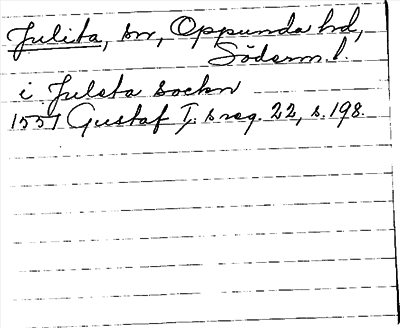 Julita, sn, Oppunda hd,
Söderm.l.
i Julsta sockn
1551 Gustaf I:s reg. 22, s. 198.